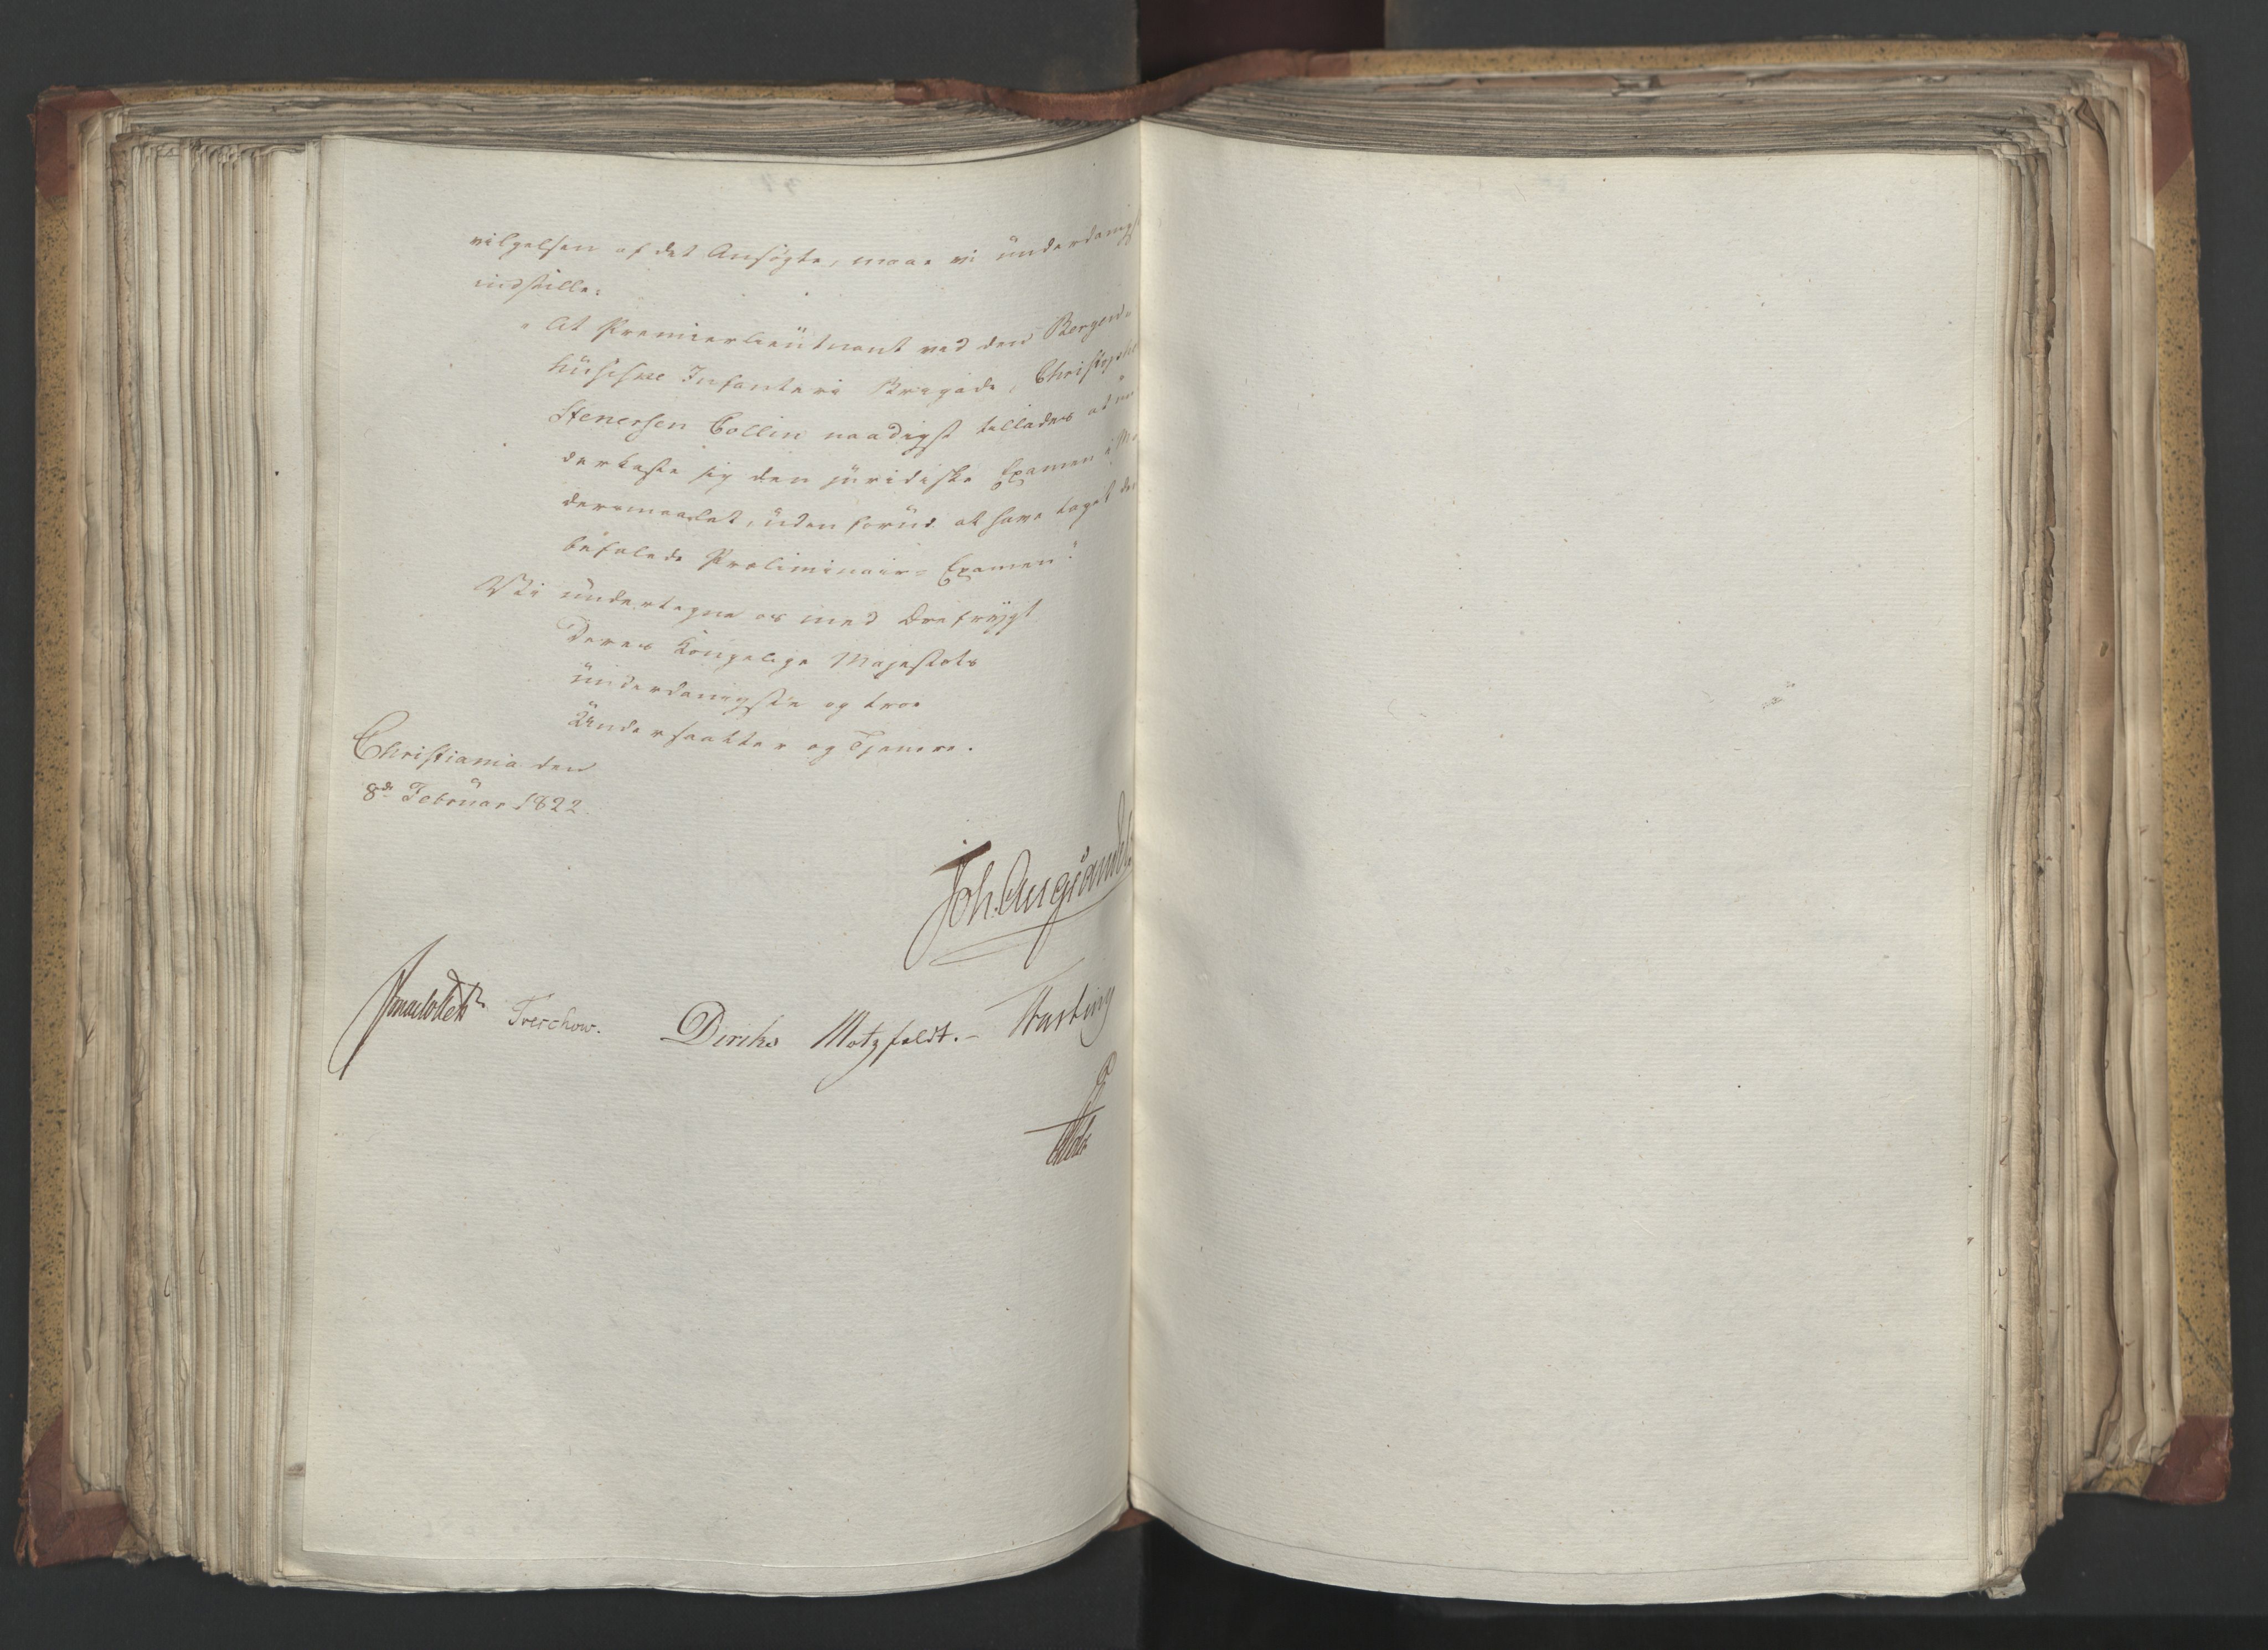 vilgelsen af det Ansøgte, maae vi underdanigst
indstille:
"At Premierlieutnant ved den Bergen-
husiske Infanteri Brigade, Christopher
Stenersen Collin naadigst tillades at un-
derkaste sig den juridiske Examen i Mo-
dersmaalet, uden forud at have taget den
befalede Præliminair-Examen".
Vi undertegne os med Ærefrygt
Deres Kongelige Majestæts
underdanigste og troe
Undersaatter og Tjenere.
Christiania den
8de Februar 1822.
Joh. Aug. Sandels
Treschow. Diriks Motzfeldt. Fasting